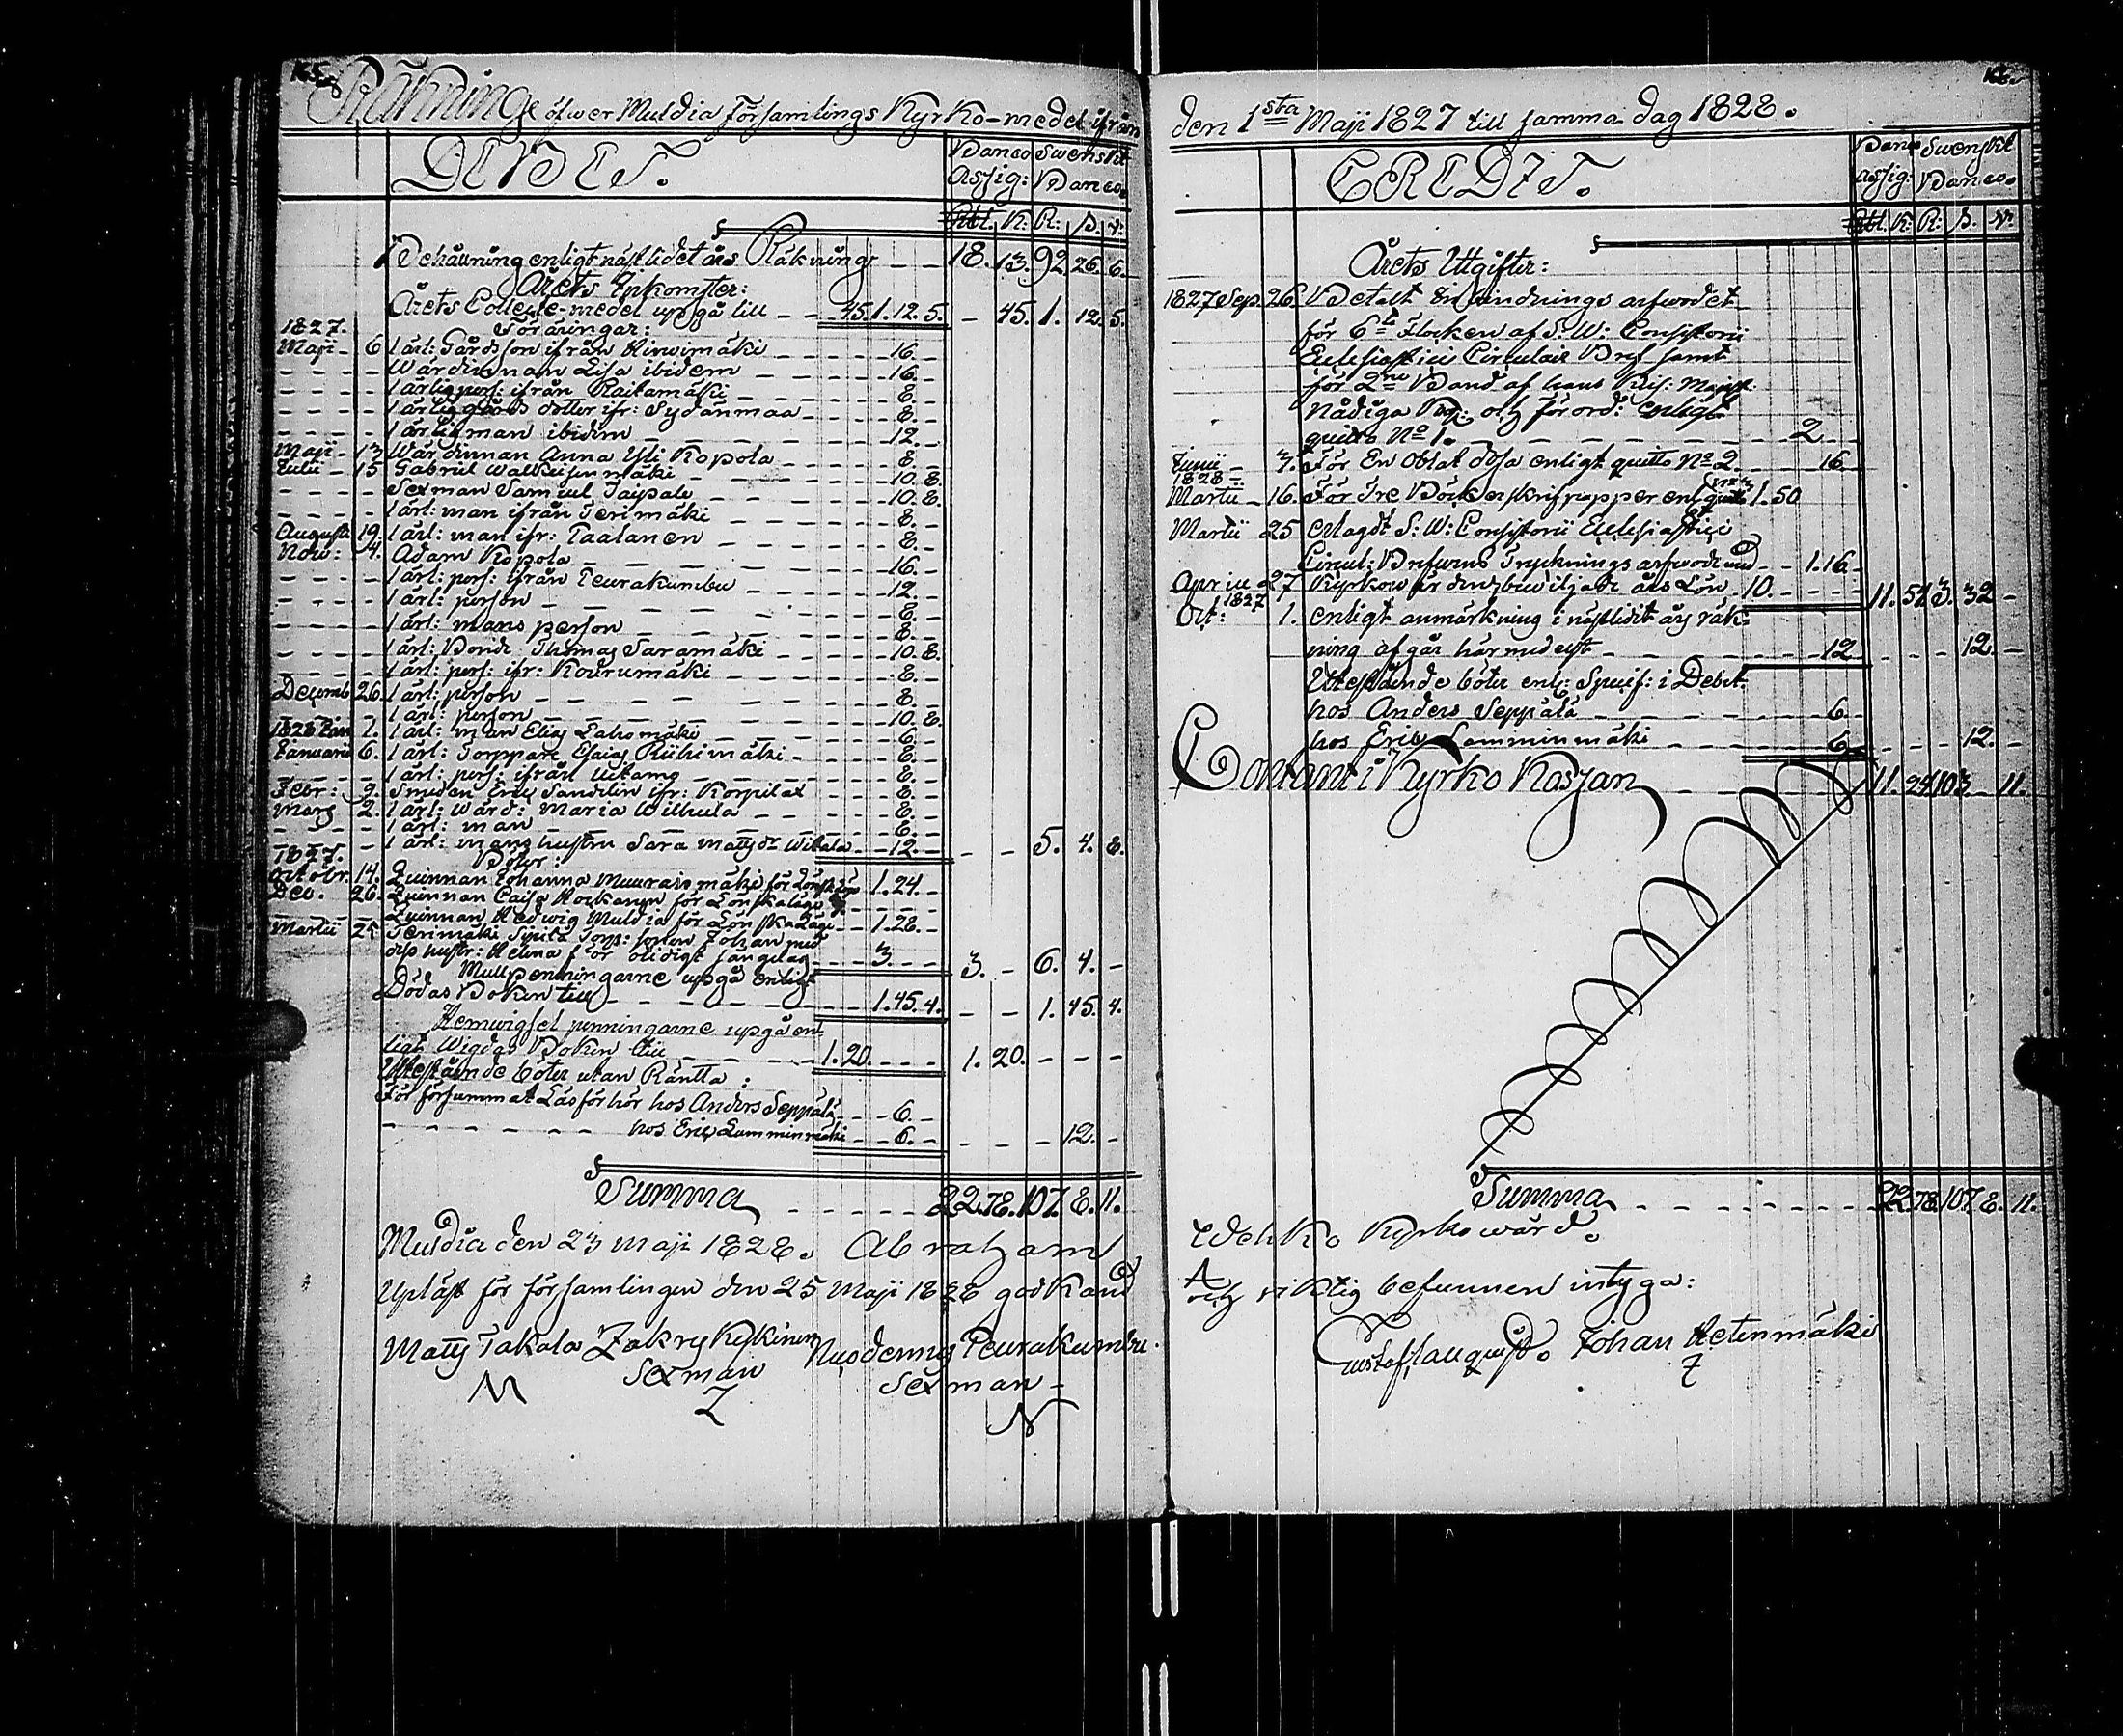 165.
Räkning öfwer Muldia Församlings Kyrko-medel ifrån
DEBET.
Banco Assig:
Swenskt Banco.
Rbl. K: R: s. r:
Behållning enligt näst lidet års Räkning 18. 13. 92. 26. 6.
Årets Inkomster:
Årets Collecte-medel upgå till 45. 1. 12. 5. 45. 1. 12. 5.
1827. Föräringar:
Maji 6 1 ärl: Gårdsson ifrån Hirvimäki 16.
Wärdinnan Lisa ibidem 16.
1 ärlig pers: ifrån Raitamäki 8.
1 ärlig gårds dotter ifr: Sydänmaa 8.
1 ärlig man ibidem 12.
Maji 13 Wärdinnan Anna Yli Kopola 8.
Julii 15 Gabriel Walkeisenmäki 10. 8.
Sexman Samuel Taipale 10. 8.
1 ärl: man ifrån Terimäki 8.
Augusti 19. 1 ärl: man ifr: Taalanen 8.
Now: 4. Adam Kopola 16.
1 ärl: pers: ifrån Peurakumbu 12.
1 ärl: person 8.
1 ärl: mans person 8.
1 ärl: Bonde Thomas Saramäki 10. 8.
1 ärl: pers: ifr: Kodrumäki 8.
Decemb 26. 1 ärl: person 8.
1 ärl: person 10. 8.
1828 Jan 1. 1 ärl: man Elias Lahomäki 6.
Januarii 6. 1 ärl: Torppare Esaias Riihimäki 8.
1 ärl: pers: ifrån Uitamo 8.
Febr: 9. Smeden Eric Sandelin ifr: Korpilax 8.
Mars 2. 1 ärl: Wärd: Maria Wilhula 8.
1 ärl: man 6.
1 ärl: mans hustru Sara Matts dr Witala 12. 5. 4. 8.
1827. Böter:
Octobr. 14. Quinnan Johanna Muuraismäki för Lönsk Läge 1. 24.
Dec. 26. Quinnan Caisa Hockanen för Lönskaläge
Quinnan Hedwig Muldia för Lönskaläge 1. 28.
Martii 25 Terimäki Torp: sonen Johan med
dess hustr: Helena för otidigt sängelag 3. 3. 6. 4.
Mullpenningarne upgå enligt
Dödas Boken till 1. 45. 4. 1. 45. 4.
Hemwigsel penningarne upgå en-
ligt Wigdas Boken till 1. 20. 1. 20.
Utestående böter utan Räntta:
För försummat Läsförhör hos Anders Seppälä 6.
hos Eric Lamminmäki 6. 12.
Summa 22. 78. 107. 8. 11.
Muldia den 23 Maji 1828. Abraham
Upläst för församlingen den 25 Maji 1828 godkänd
Matts Takala Zakrys Kykinen Nicodemus Peurakumbu.
M Sexman Sexman
Z N
den 1sta Maji 1827 till samma dag 1828.
CREDIT.
Banco Assig:
Swenskt Banco.
Rbl. K: R: s. r:
Årets Utgifter:
1827 Sep. 26 Betalt Inbindnings arfwodet
för 6te Flocken af S. W: Consistorii
Ecclesiastici Circulair Bref samt
för 2ne Band af hans Kejs: Majst:
Nådiga och Förord: enligt
quitto No 1. 2
Junii 7. För En Oblat dosa enligt quitto No 2. 16
1828
Martii 16. För Tre Böcker skrifpapper enl quitto 1. 50
Martii 25 erlagdt S: W: Consistorii Ecclesiastici
Circul: Brefwens Trycknings arfwode med 1. 16.
Aprill 27 Kyrkowärdens bewiljade års Lön 10. 11. 52 3. 32
Oct: 1827 1. enligt anmärkning i nästlidit års räk-
ning afgår härmedelst 12 12.
Utestående böter enl: Specif: i Debet:
hos Anders Seppälä 6.
hos Eric Lamminmäki 6 12.
Contant i Kyrko Kassan 11. 24 103. 11.
Summa 22. 78. 107. 8. 11.
Wehko Kyrkowärd.
A
och riktig befunnen intyga:
Gustaf Johan Hetenmäki